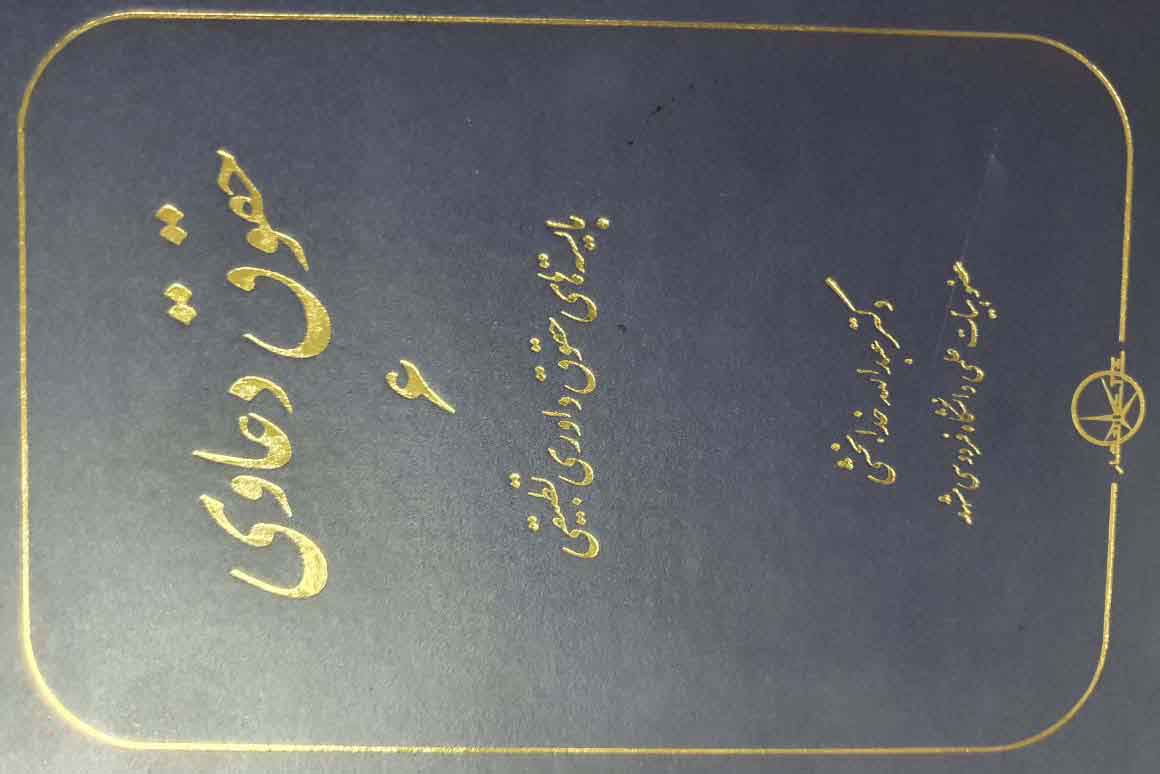 حقوق دعاوی
۶
پایه‌های حقوق داوری تطبیقی
دکتر عبدالله خدابخشی
عضو هیات علمی دانشگاه فردوسی مشهد